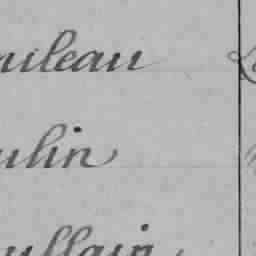 uileau
ulin
ullain